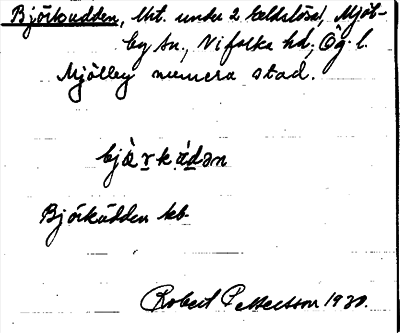 Björkudden, Akt. under 2 Beldelösa, Mjöl-
by sn., Vifolka hd, Ög. l.
Mjölby numera stad.
bjɑ̀rkɑ́dən
Björkådden kb.
Robert Pettersson 1930.